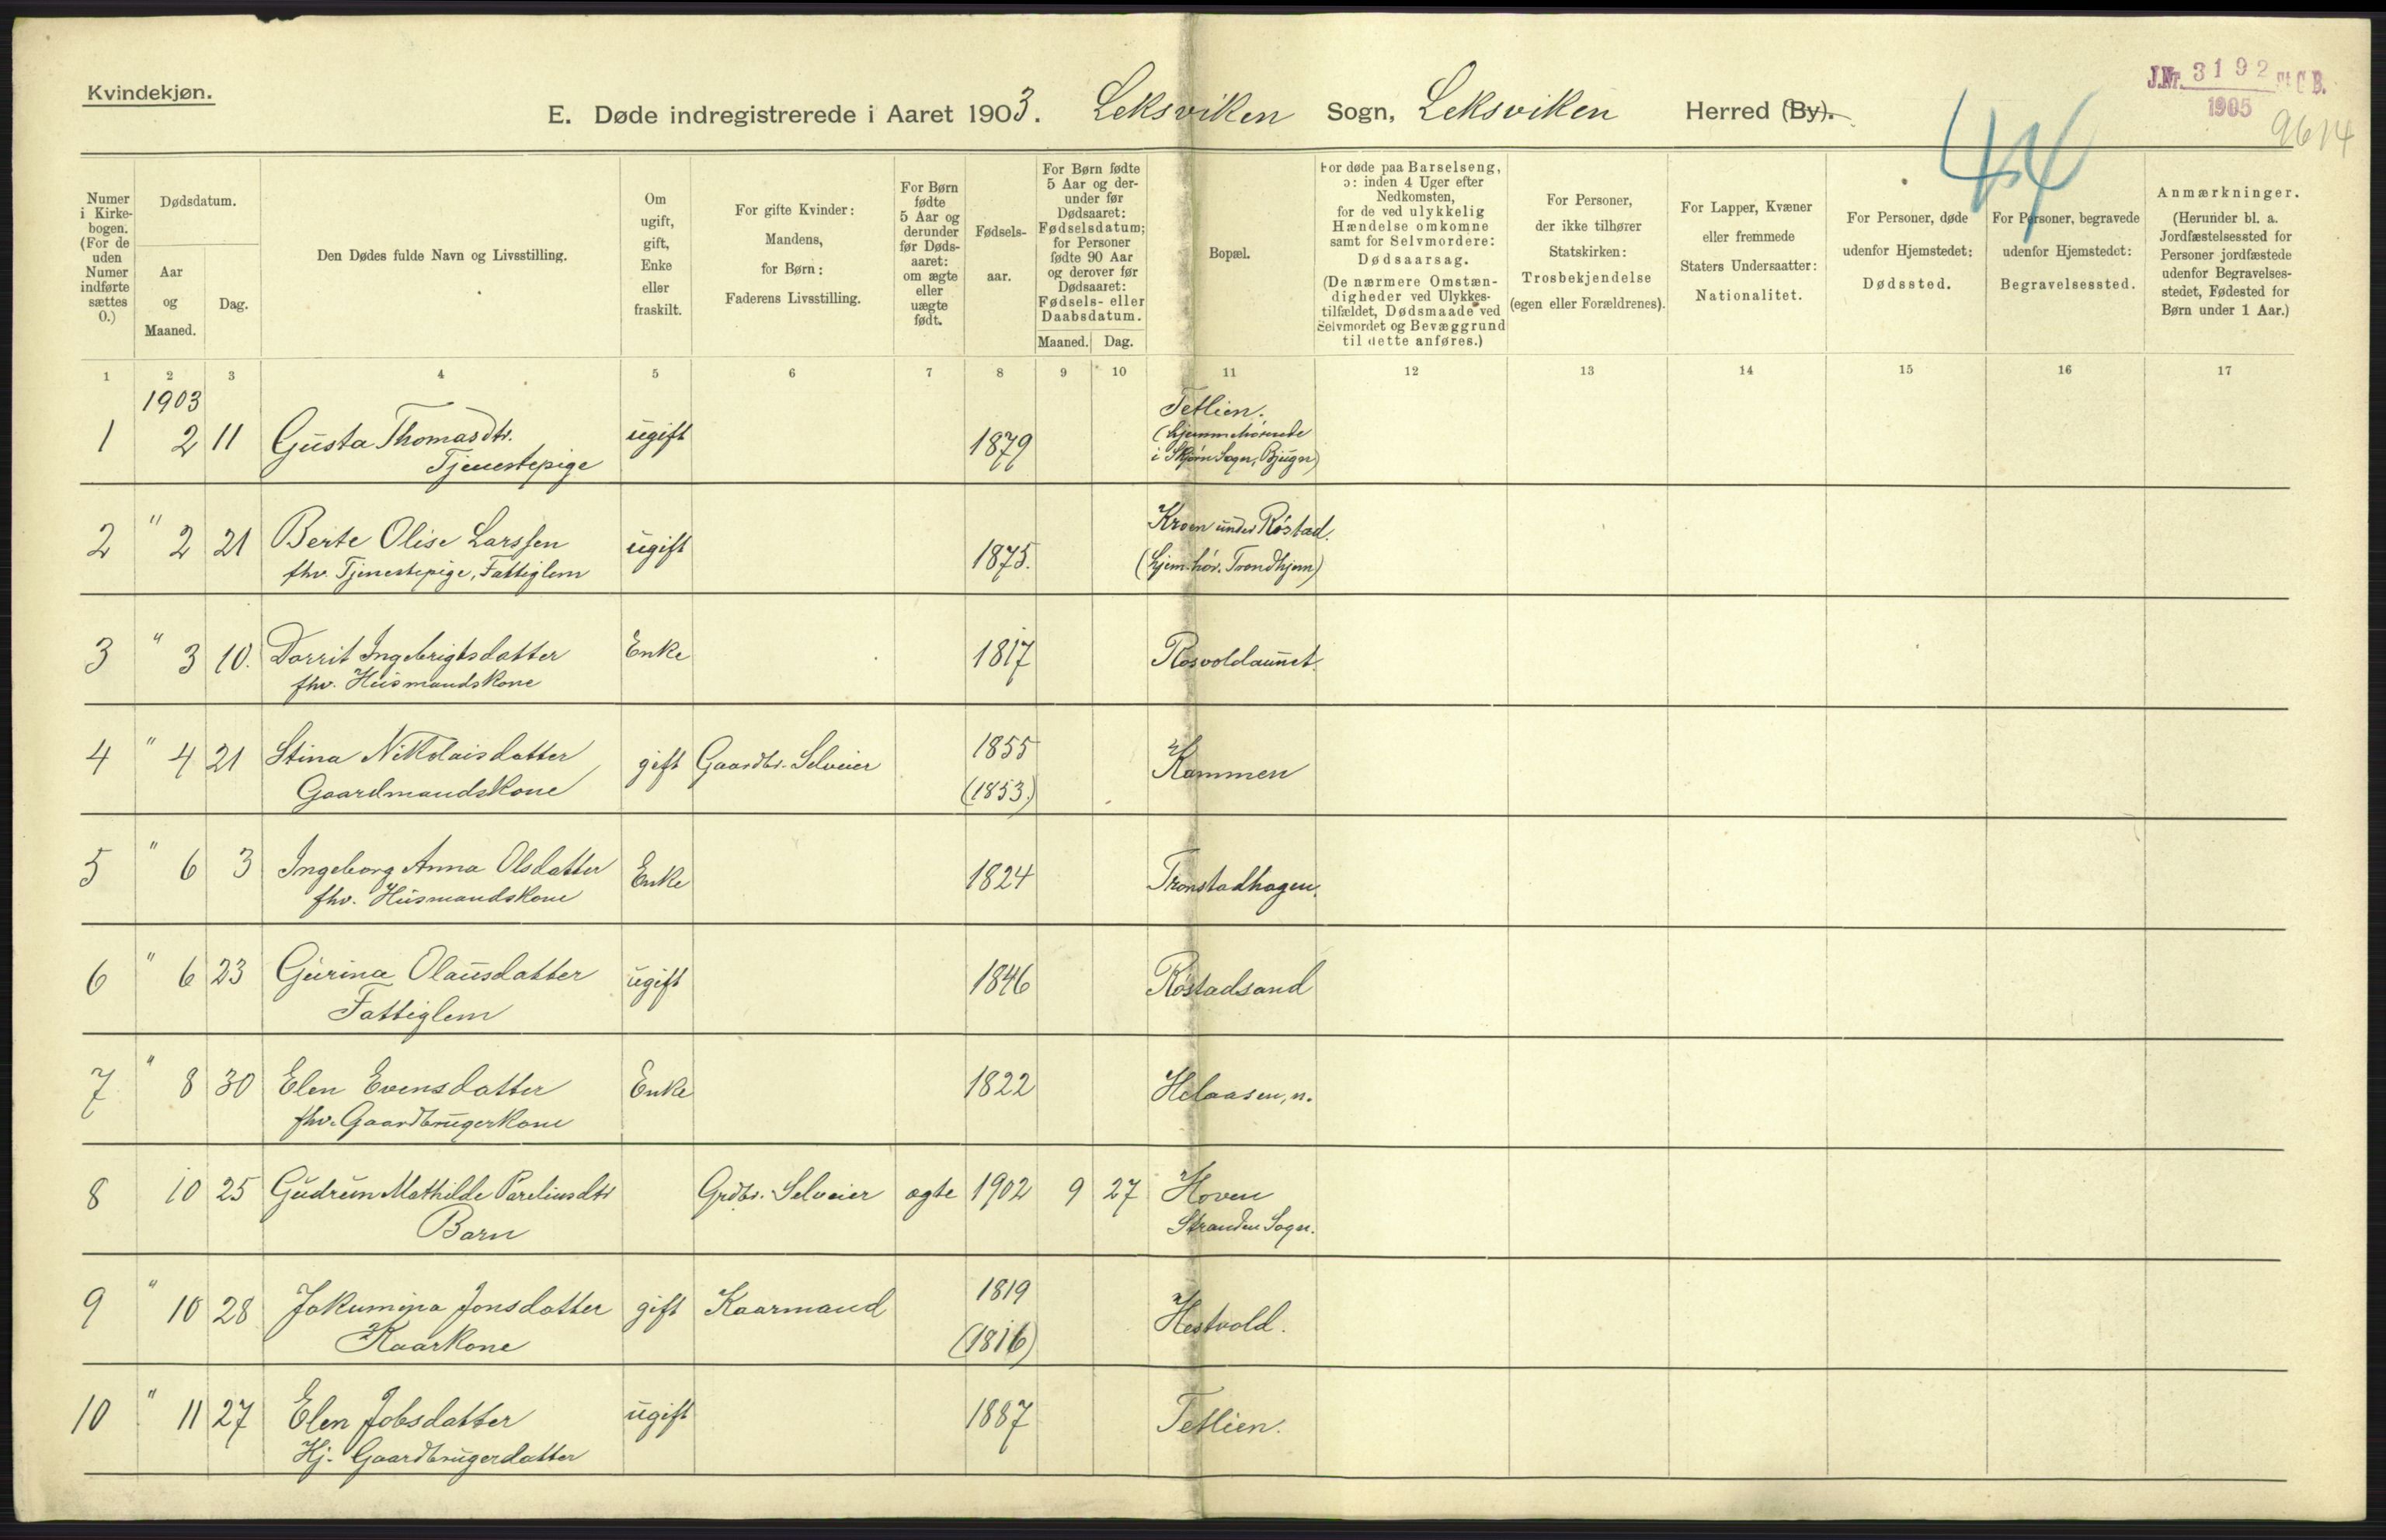 Kvindekjøn.
E. Døde indregistrerede i Aaret 1903. Leksviken Sogn, Leksviken Herred (By).
J.Nr. 3192 St C B.
1905
9614
44
Numer i Kirke-bogen. (For de uden Numer indførte sættes 0.)
Dødsdatum.
Aar og Maaned.
Dag.
Den Dødes fulde Navn og Livsstilling.
Om ugift, gift, Enke eller fraskilt.
For gifte Kvinder: Mandens, for Børn: Faderens Livsstilling.
For Børn fødte 5 Aar og derunder før Døds-aaret: om ægte eller uægte født.
Fødsels-aar.
For Børn fødte 5 Aar og der-under før Dødsaaret: Fødselsdatum; for Personer fødte 90 Aar og derover før Dødsaaret: Fødsels- eller Daabsdatum.
Maaned. Dag.
Bopæl.
For døde paa Barselseng, ɔ: inden 4 Uger efter Nedkomsten, for de ved ulykkelig Hændelse omkomne samt for Selvmordere: Dødsaarsag. (De nærmere Omstæn-digheder ved Ulykkes-tilfældet, Dødsmaade ved Selvmordet og Bevæggrund til dette anføres.)
For Personer, der ikke tilhører Statskirken: Trosbekjendelse (egen eller Forældrenes).
For Lapper, Kvæner eller fremmede Staters Undersaatter: Nationalitet.
For Personer, døde udenfor Hjemstedet: Dødssted.
For Personer, begravede udenfor Hjemstedet: Begravelsessted.
Anmærkninger. (Herunder bl. a. Jordfæstelsessted for Personer jordfæstede udenfor Begravelses-stedet, Fødested for Børn under 1 Aar.)
1 2 3 4 5 6 7 8 9 10 11 12 13 14 15 16 17
1903
1 2 11 Gusta Thomasdtr. ugift 1879 Tetlien.
Tjenestepige
(hjemmehørende
i Skjørn Sogn, Bjugn)
2 " 2 21 Berte Olise Larssen ugift 1875. Kroen under Røstad.
fhv. Tjenestepige, Fattiglem (hjem.hør. Trondhjem)
3 " 3 10. Dorrit Ingebrigtsdatter Enke 1817 Rosvoldaunet.
fhv. Husmandskone
4 " 4 21 Stina Nikolaisdatter gift Gaardbr. Selveier 1855 Kammen
Gaardmandskone (1853.)
5 " 6 3 Ingeborg Anna Olsdatter Enke 1824 Tronstadhagen.
fhv. Husmandskone
6 " 6 23 Gurina Olausdatter ugift 1846 Røstadsand
Fattiglem
7 " 8 30 Elen Evensdatter Enke 1822 Helaasen, n.
fhv. Gaardbrugerkone
8 10 25 Gudrun Mathilde Pareliusdtr Grdbr. Selveier ægte 1902 9 27 Hoven
Barn Stranden Sogn.
9 " 10 28 Jakumina Jonsdatter gift Kaarmand 1819 Hestvold.
Kaarkone (1816)
10 " 11 27 Elen Jobsdatter ugift 1887 Tetlien.
Hj. Gaardbrugerdatter